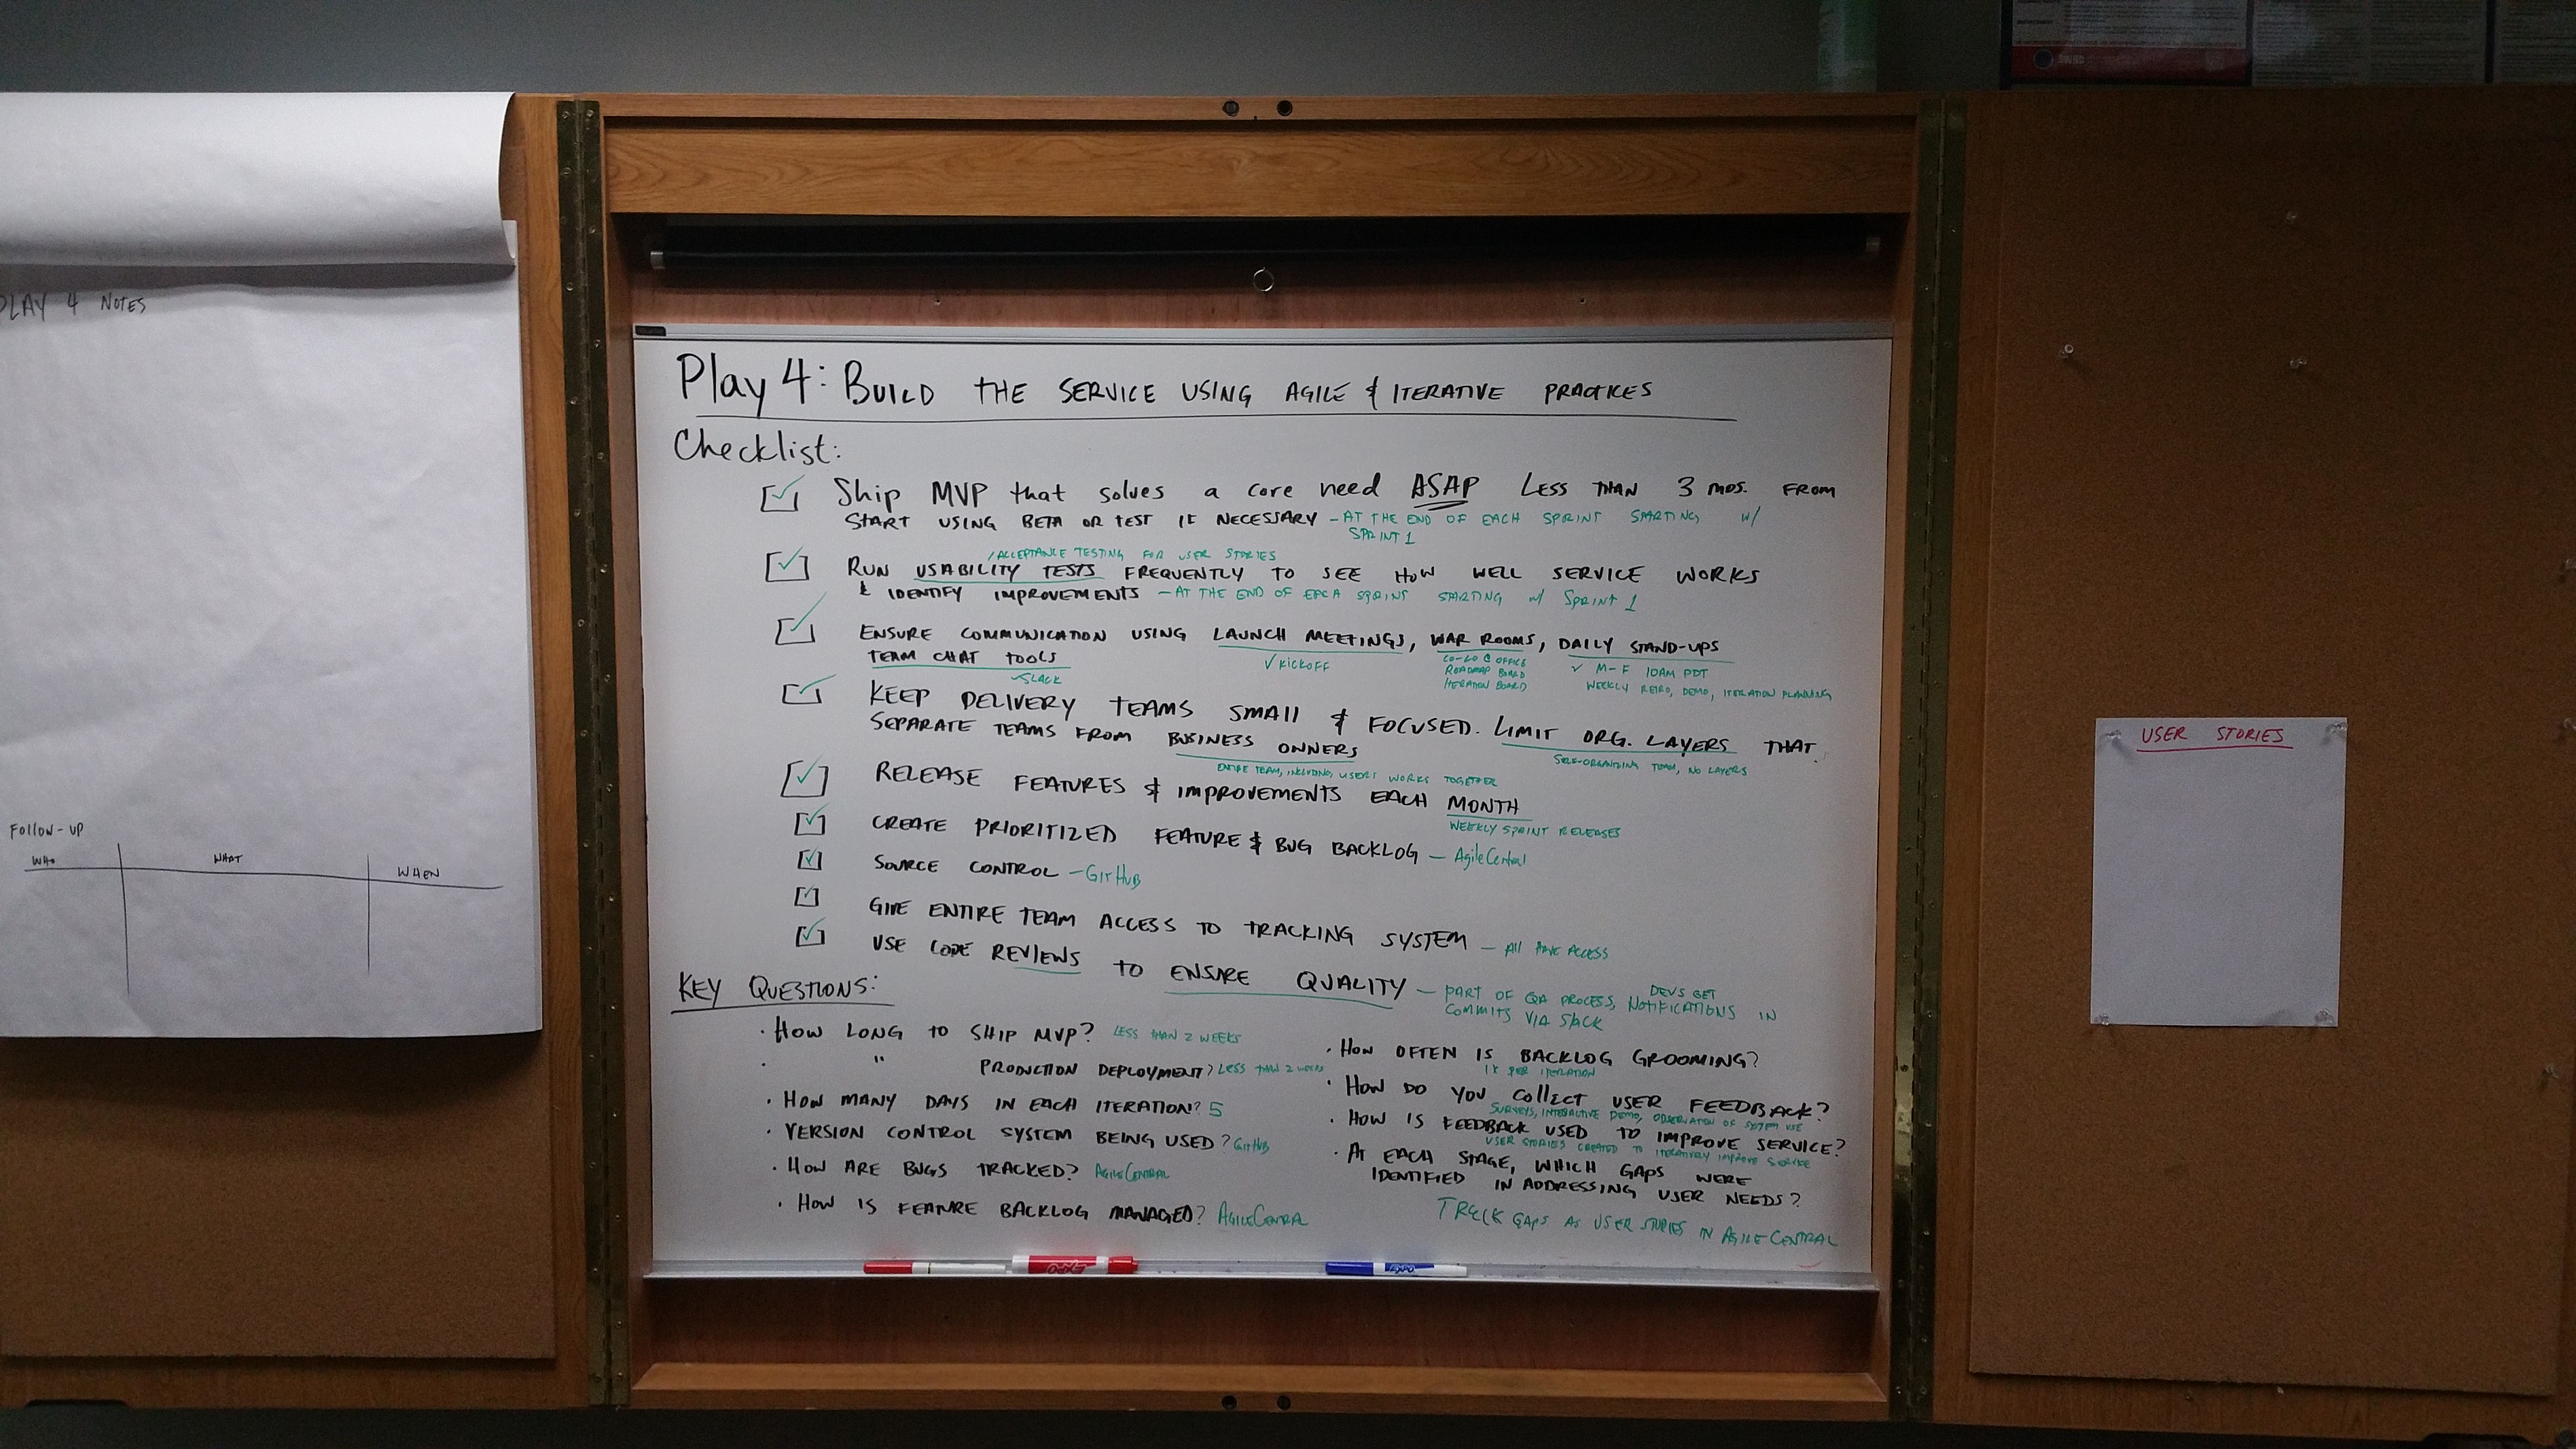 PLAY 4 NOTES
FOLLOW-UP
WHO WHAT WHEN
Play 4: BUILD THE SERVICE USING AGILE & ITERATIVE PRACTICES
Checklist:
Ship MVP that solves a core need ASAP LESS THAN 3 MOS. FROM
START USING BETA OR TEST IF NECESSARY - AT THE END OF EACH SPRINT STARTING W/
SPRINT 1
/ACCEPTANCE TESTING FOR USER STORIES
RUN USABILITY TESTS FREQUENTLY TO SEE HOW WELL SERVICE WORKS
& IDENTIFY IMPROVEMENTS - AT THE END OF EACH SPRINT STARTING W/ SPRINT 1
ENSURE COMMUNICATION USING LAUNCH MEETINGS, WAR ROOMS, DAILY STAND-UPS
TEAM CHAT TOOLS
✓SLACK
✓KICKOFF
CO-LO @ OFFICE
ROADMAP BOARD
ITERATION BOARD
✓ M-F 10AM PDT
WEEKLY RETRO, DEMO, ITERATION PLANNING
KEEP DELIVERY TEAMS SMALL & FOCUSED. LIMIT ORG. LAYERS THAT
SEPARATE TEAMS FROM BUSINESS OWNERS
SELF-ORGANIZING TEAM, NO LAYERS
ENTIRE TEAM, INCLUDING USERS WORKS TOGETHER
RELEASE FEATURES & IMPROVEMENTS EACH MONTH
WEEKLY SPRINT RELEASES
CREATE PRIORITIZED FEATURE & BUG BACKLOG - AgileCentral
SOURCE CONTROL - GITHUB
GIVE ENTIRE TEAM ACCESS TO TRACKING SYSTEM - All HAVE ACCESS
USE CODE REVIEWS TO ENSURE QUALITY - PART OF QA PROCESS, DEVS GET NOTIFICATIONS IN
COMMITS VIA SlACK
KEY QUESTIONS:
· HOW LONG TO SHIP MVP? LESS THAN 2 WEEKS
· " PRODUCTION DEPLOYMENT? LESS THAN 2 WEEKS
· HOW MANY DAYS IN EACH ITERATION? 5
· VERSION CONTROL SYSTEM BEING USED? GITHUB
· HOW ARE BUGS TRACKED? AGILECENTRAL
· HOW IS FEATURE BACKLOG MANAGED? AGILECENTRAL
· HOW OFTEN IS BACKLOG GROOMING?
1X PER ITERATION
· HOW DO YOU COLLECT USER FEEDBACK?
SURVEYS, INTERACTIVE DEMO, OBSERVATION OF SYSTEM USE
· HOW IS FEEDBACK USED TO IMPROVE SERVICE?
USER STORIES CREATED TO ITERATIVELY IMPROVE SERVICE
· AT EACH STAGE, WHICH GAPS WERE
IDENTIFIED IN ADDRESSING USER NEEDS?
TRACK GAPS AS USER STORIES IN AGILE CENTRAL
EXPO
EXPO
USER STORIES